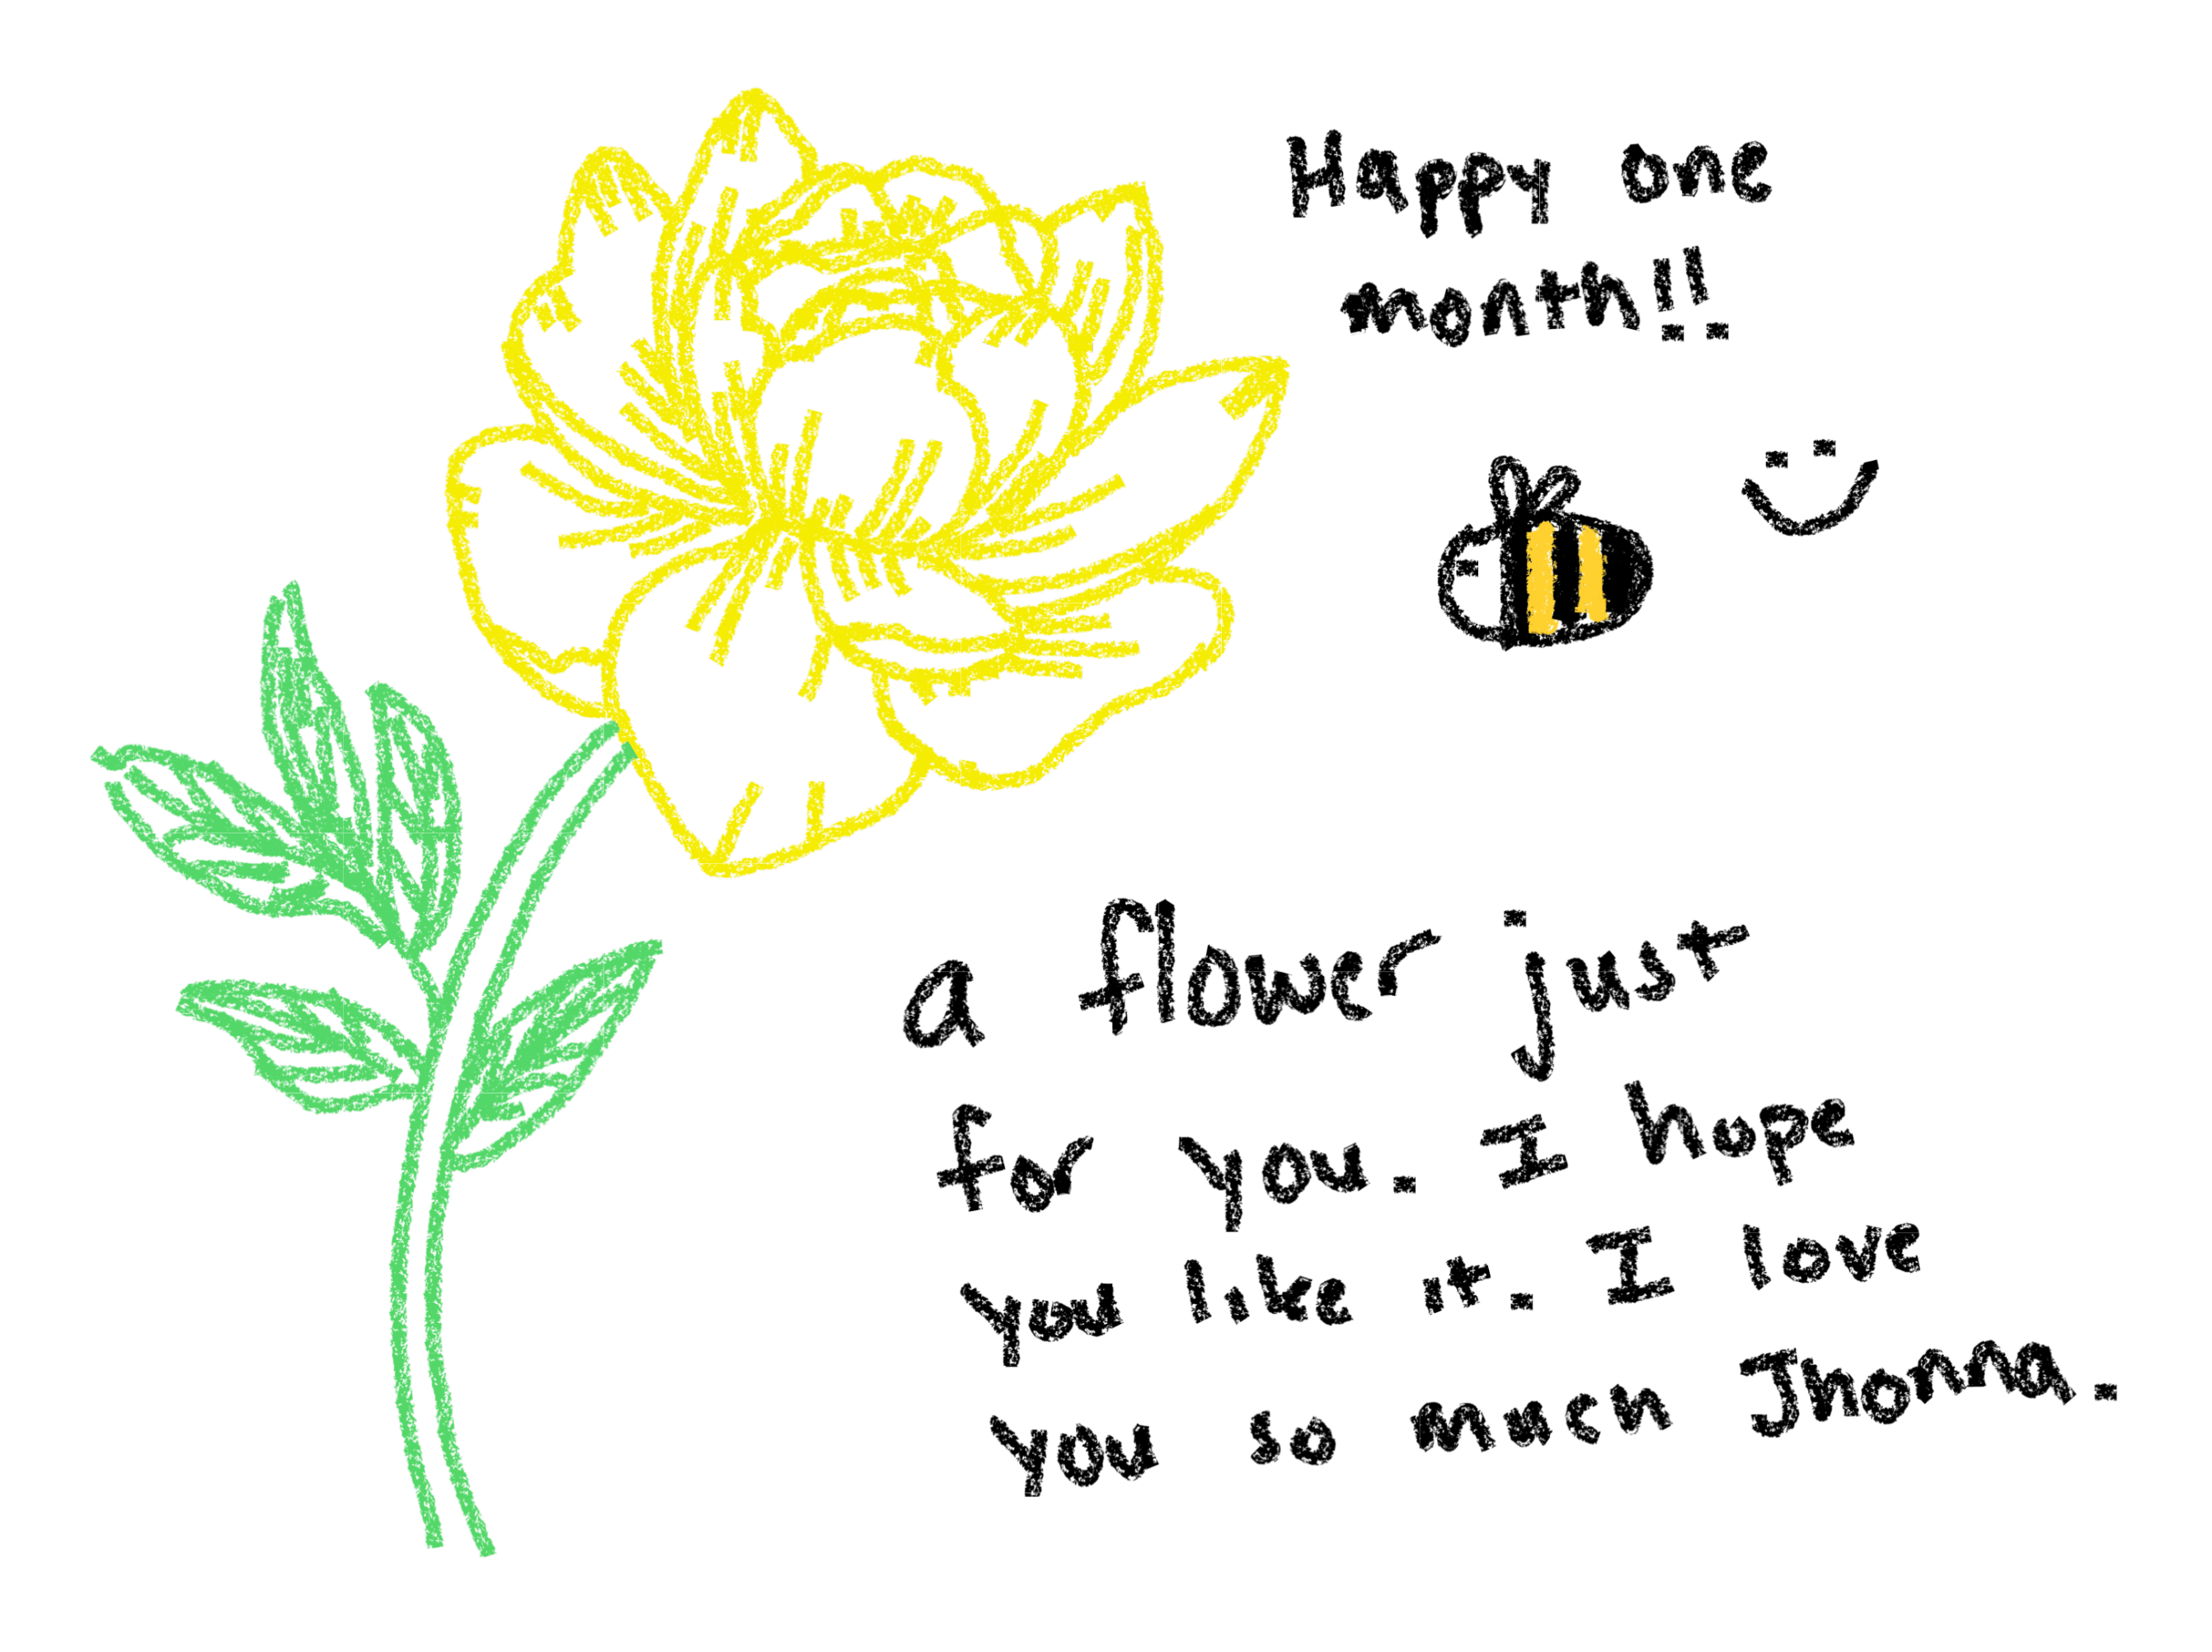 Happy one
month!!
a flower just
for you. I hope
you like it. I love
you so much Jhonna.